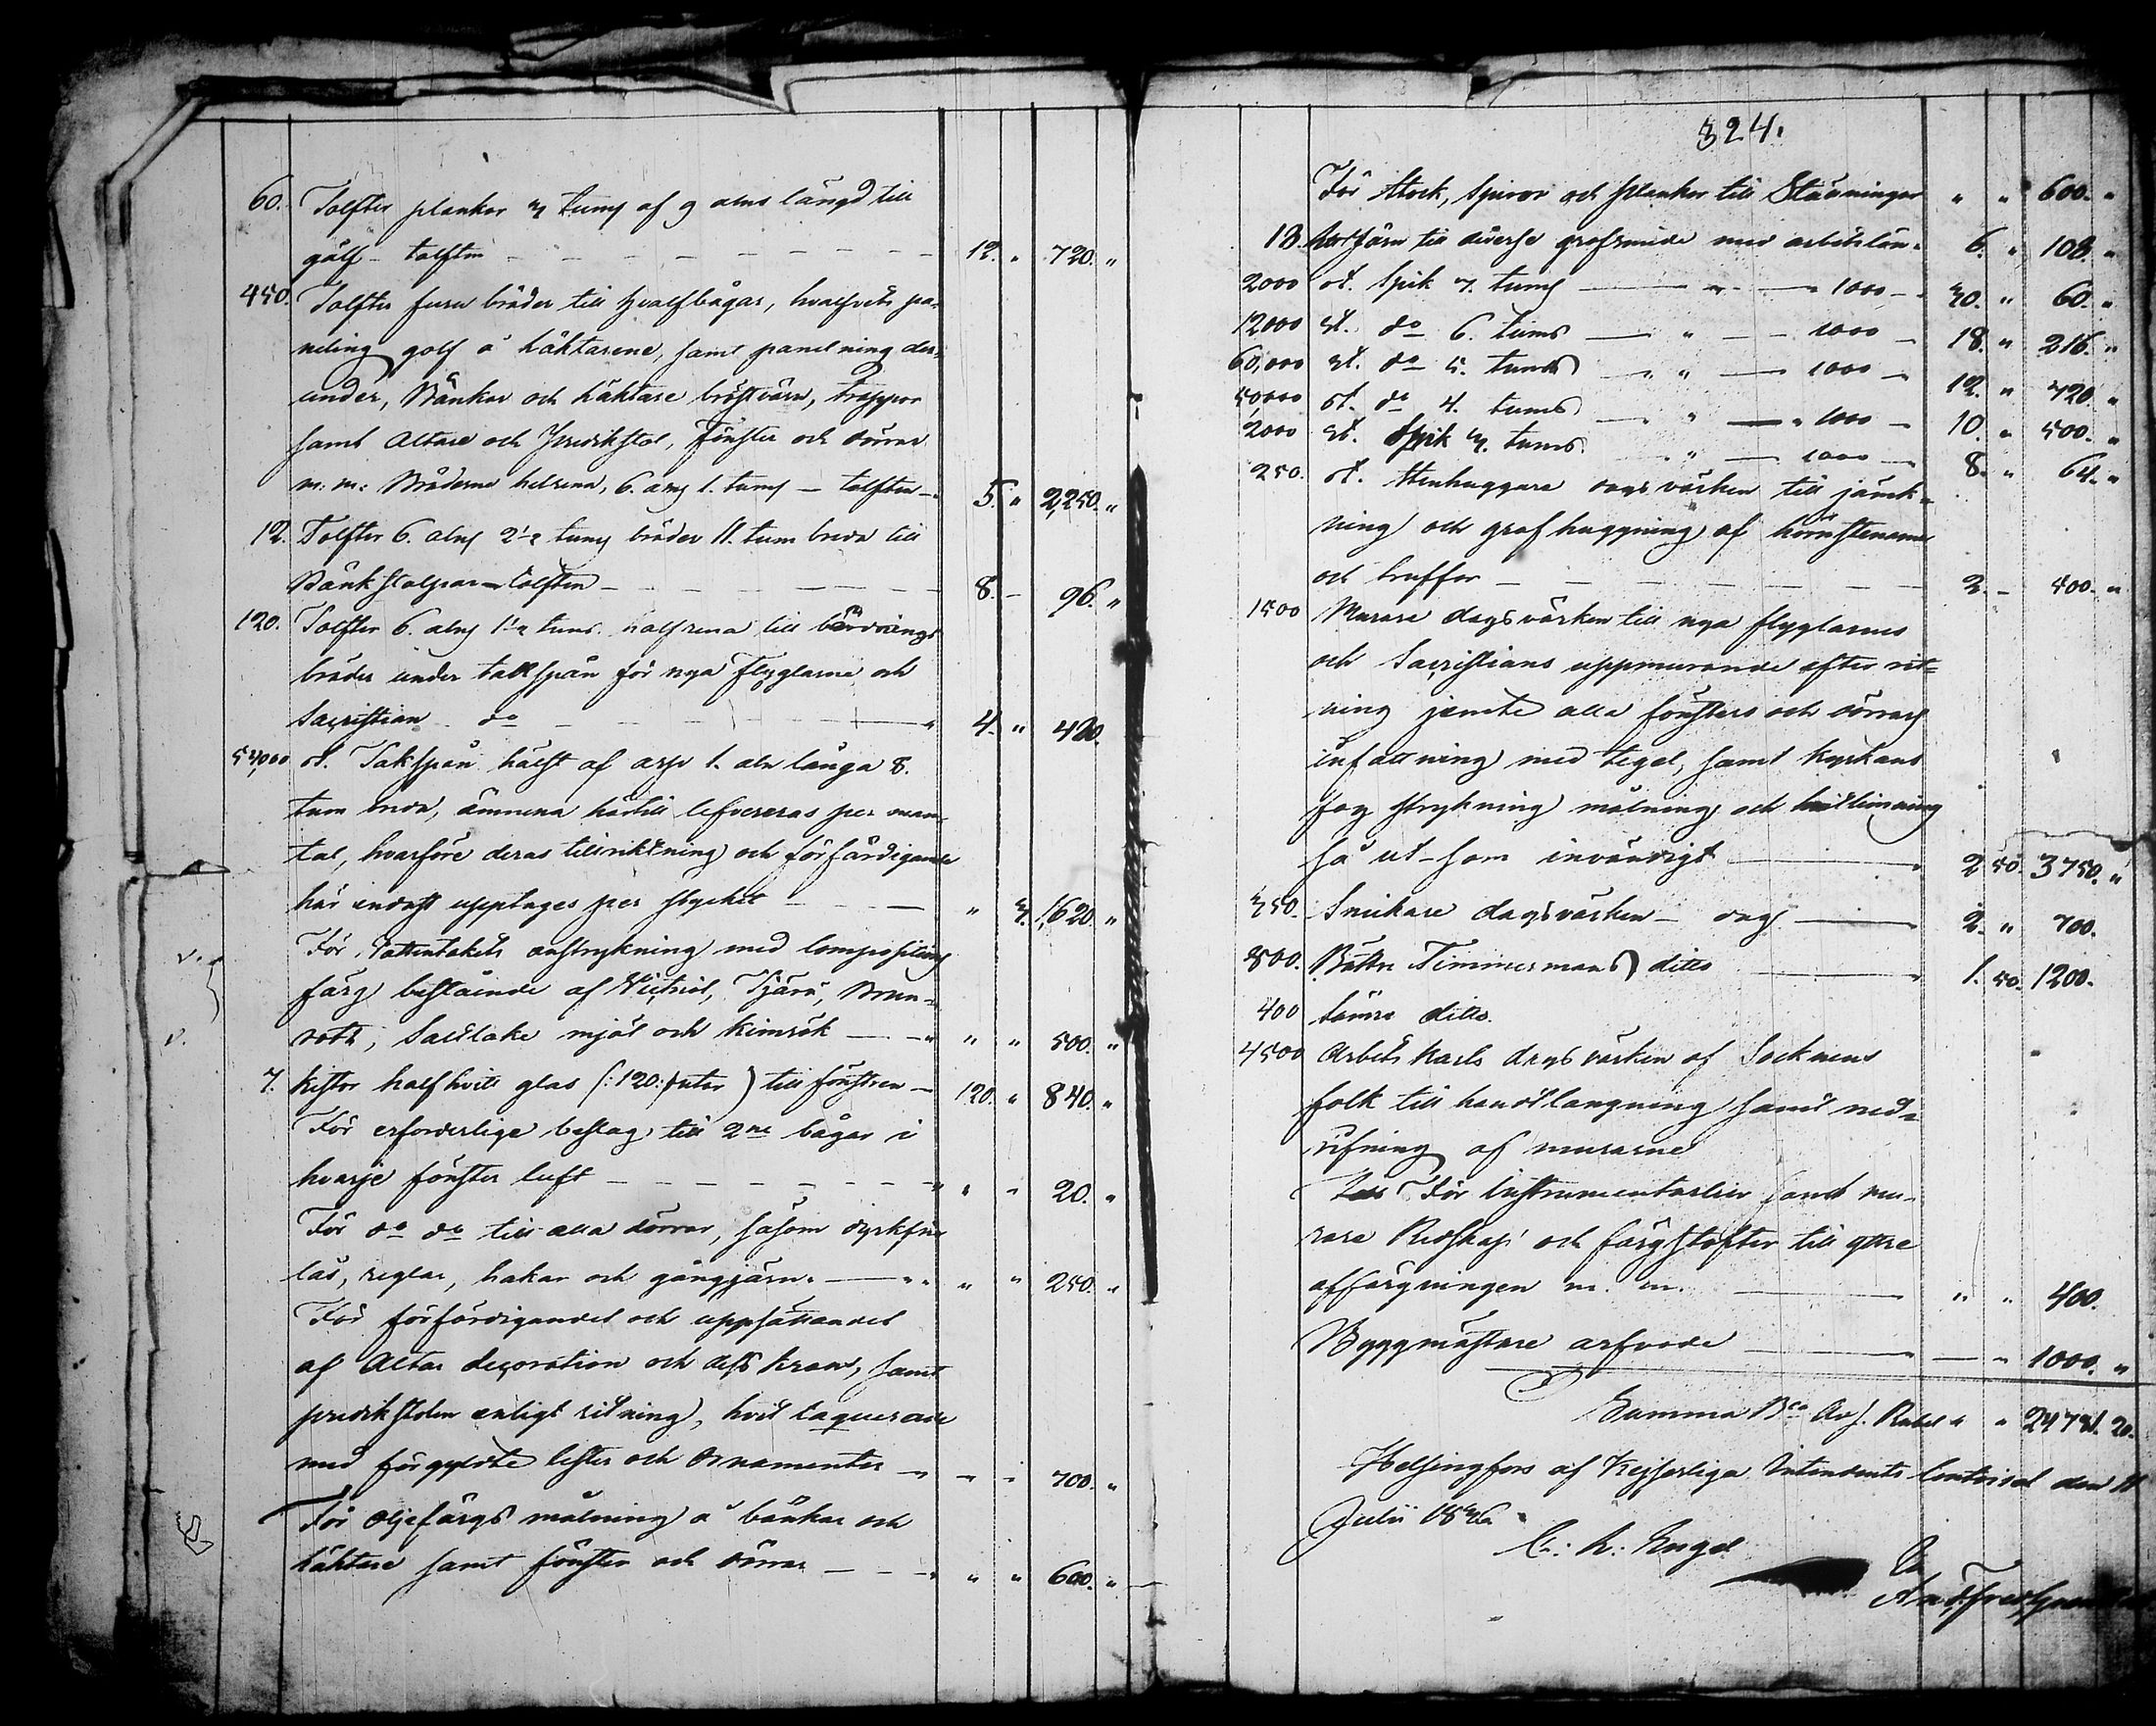 60. Tolfter plankor 3 tums af 9 alns längd till
gålf - tolften — 12. " 720. "
450. Tolfter furu bräder till hvalfbågar, hvalfvets pa-
neling golf å läktarene, samt panelning der-
under, Bänkar och läktare bröstvärn, trappor
samt Altare och Predikstol, fönster och dörrar
m: m: Bräderne helrena, 6. alns 1. tums — tolften — 5. " 2,250. "
12. Tolfter 6. alns 2½ tums bräder 11. tum breda till
Bänkstolpar — tolften — 8. — 96. "
120. Tolfter 6. alns 1½ tums halfrena till
bräder under takspån för nya Flyglarne och
Sacristian do — 4. " 480.
540,00 st. Takspån hälst af asp 1. aln långa 8.
tum breda, ämnena härtill lefvereras per man-
tal, hvarföre deras tillriktning och förfärdigande
här endast upptages per stycket — " 3. 1,620. "
För Vattentakets anstrykning med Compositions
färg bestående af Victriol, Tjära, Brun-
röth, Saltlake mjöl och kimrök — " " 500. "
7. Kistor halfhvitt glas (: 120: rutor) till fönstren — 120. " 840. "
För erforderlige beslag till 2ne bågar i
hvarje fönster luft — " " 20. "
För do do till alla dörrar, såsom dyrkfria
lås, reglar, hakar och gångjärn. — " " 250. "
För förfärdigandet och uppsättandet
af Altar decoration och dess krans, samt
predikstolen enligt ritning, hvit laquerade
med förgyldte lister och Ornamenter — " " 700. "
För Oljefärgs målning å bänkar och
läktare samt fönster och dörrar — " " 600. "
324.
För Stock, Spiror och plankor till Ställningar " " 600. "
18. järn till diverse grofsmide med arbetslön. 6. " 108. "
2000 st. Spik 7. tums — " — 1000 — 30. " 60. "
12000 st. do 6. tums — " — 1000 — 18. " 216. "
60,000 st. do 5. tums — " — 1000 — 12. " 720. "
50,000 st. do 4. tums — " — 1000 — 10. " 500. "
2000 st. Spik 3. tums — " — 1000 — 8. " 64. "
250. st. Stenhuggare dagsvärken till jämk-
ning och grofhuggning af hörnstenarne
och trappor — 2. — 500. "
1500 Murare dagsvärken till nya flyglarnes
och Sacristians uppmurande efter rit-
ning jemte alla fönsters och dörrars
infattning med tegel, samt Kyrkans
fog strykning målning och hvitlimning
så ut-som invändigt — 2 50. 3750. "
350. Snickare dagsvärken — dags — 2. " 700.
800. Bättre Timmermans ditto — 1. 50. 1200.
400 Sämre ditto.
4500 Arbets Karls dagsvärken af Socknens
folk till handtlangning samt ned-
rifning af murarne
För Instrumentarlier samt mu-
rare Redskap och färgstofter till yttre
affärgningen m. m. — " " 400.
Byggmästare arfvode — — " 1000. "
Summa Bco Ass. Rubel " " 24781. 20.
Helsingfors af Kejserliga Intendents Contoiret den 11
Julii 1836.
C: L: Engel